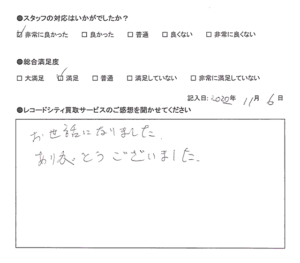 ●スタッフの対応はいかがでしたか?
☑ 非常に良かった □ 良かった □ 普通 □ 良くない □ 非常に良くない
●総合満足度
□ 大満足 ☑ 満足 □ 普通 □ 満足していない □ 非常に満足していない
記入日: 2022年 11月 6日
●レコードシティ買取サービスのご感想を聞かせてください
お世話になりました.
ありがとうございました.